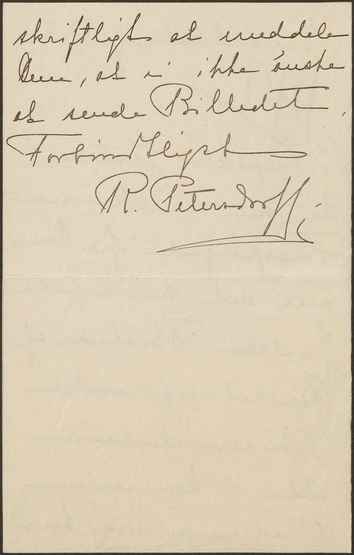 skriftligt at meddele
Dem, at vi ikke ønske
at sende Billedet.
Forbindtligst
R. Petersdorff.